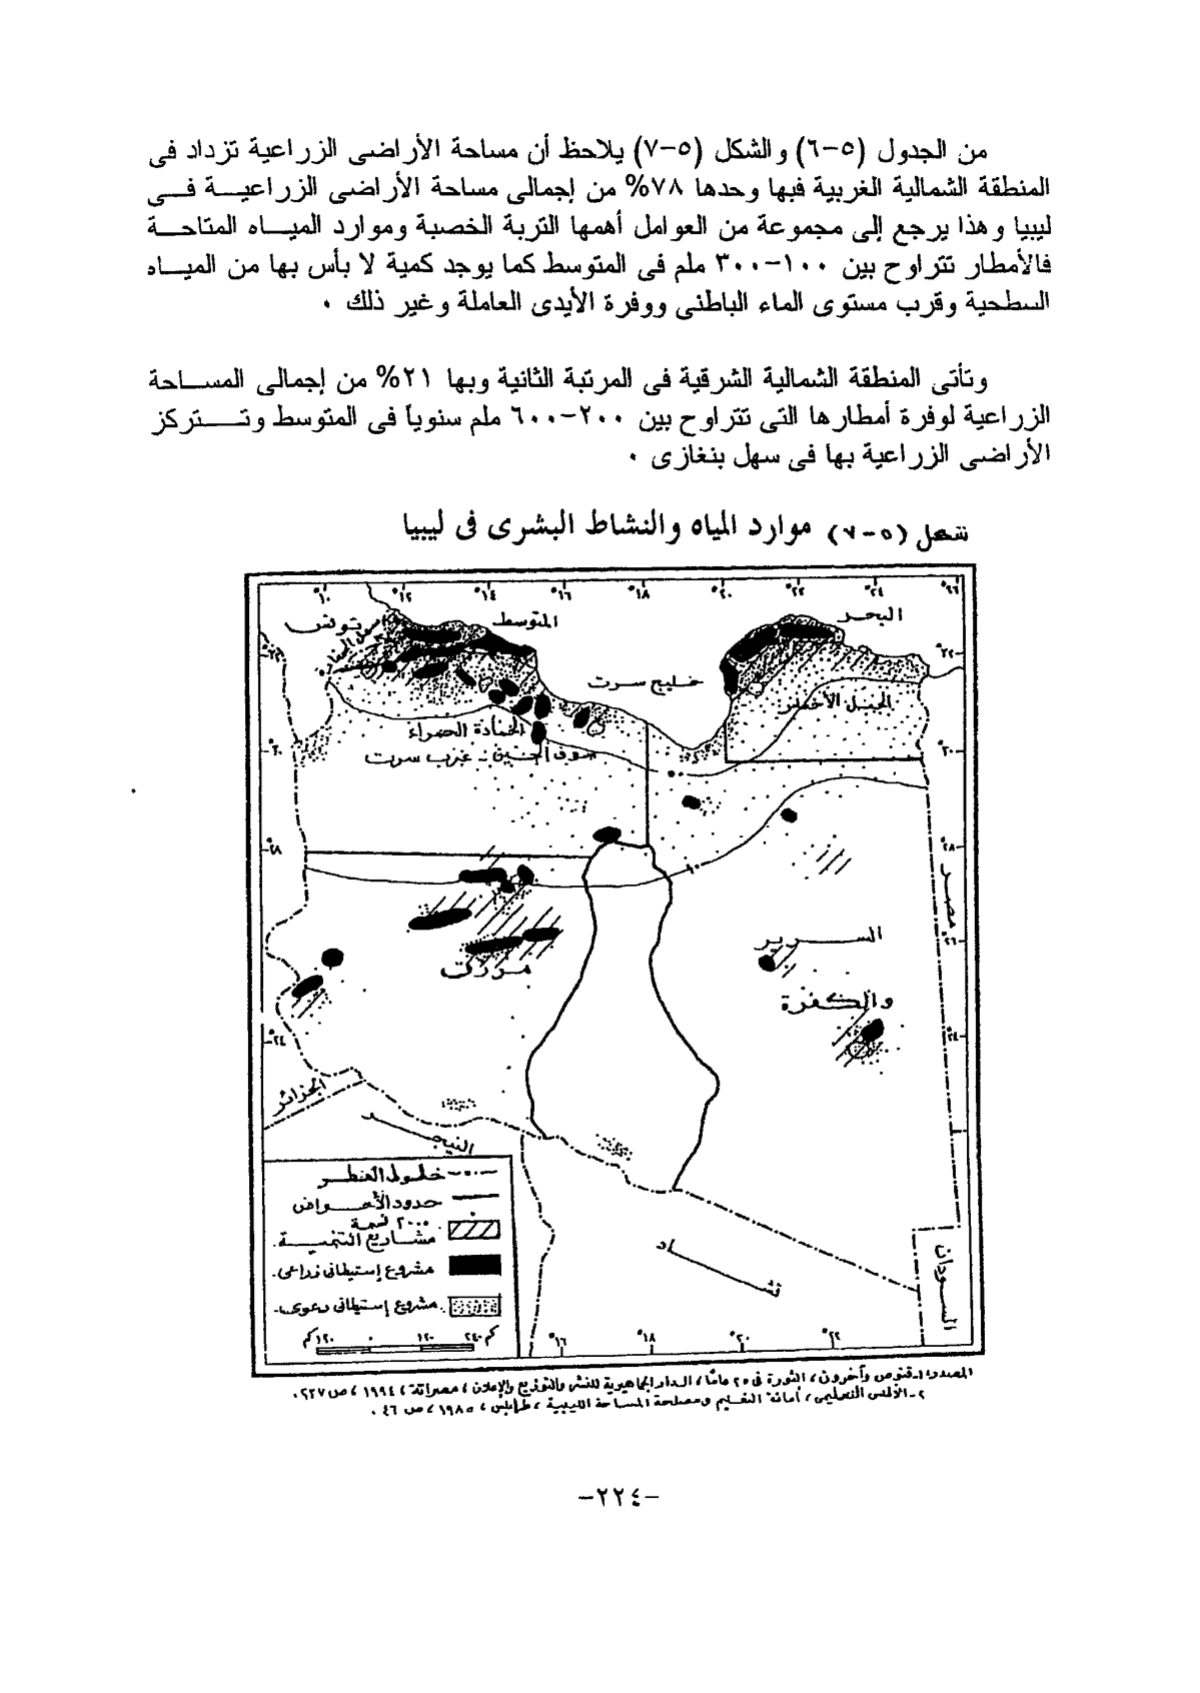 من الجدول (٥-٦) والشكل (٥-٧) يلاحظ أن مساحة الأراضى الزراعية تزداد فى
المنطقة الشمالية الغربية فبها وحدها ٧٨% من إجمالى مساحة الأراضى الزراعيـــة فـــى
ليبيا وهذا يرجع إلى مجموعة من العوامل أهمها التربة الخصبة وموارد الميـــاه المتاحـــة
فالأمطار تتراوح بين ١٠٠-٣٠٠ ملم فى المتوسط كما يوجد كمية لا بأس بها من الميـــاه
السطحية وقرب مستوى الماء الباطنى ووفرة الأيدى العاملة وغير ذلك ٠
وتأتى المنطقة الشمالية الشرقية فى المرتبة الثانية وبها ٢١% من إجمالى المســـاحة
الزراعية لوفرة أمطارها التى تتراوح بين ٢٠٠-٦٠٠ ملم سنوياً فى المتوسط وتـــتركز
الأراضى الزراعية بها فى سهل بنغازى ٠
شكل (٥-٧) موارد المياه والنشاط البشرى فى ليبيا
١٠° ١٢° ١٤° ١٦° ١٨° ٢٠° ٢٢° ٢٤° ٢٦°
البحـــر
المتوسط
تونس
سهل الجفارة
٣٢° ٣٢°
خليج سرت
الجبل الأخضر
الحمادة الحمراء
سوف الجنين - غرب سرت
٣٠° ٣٠°
٢٨° ٢٨°
مصـــر
٢٦°
الســـرير
مرزق
والكفرة
٢٤° ٢٤°
الجزائر
النيجـــر
خطوط المطـــر
حدود الأحـــواض
٢٠٠٠ نسمة
مشاريع التنميـــة.
مشروع إستيطانى زراعى.
مشروع إستيطانى رعوى.
كم١٢٠ ٠ ١٢٠ ٢٤٠ كم
تشـــاد
الســـودان
١٦° ١٨° ٢٠° ٢٢°
المصدر: ١- قنوص وآخرون، الثورة فى ٢٥ عاماً، الدار الجماهيرية للنشر والتوزيع والإعلان، مصراتة، ١٩٩٤، ص ٢٢٧.
٢- الأطلس التعليمى، أمانة التعليم ومصلحة المساحة الليبية، طرابلس، ١٩٨٥، ص ٤٦.
-٢٢٤-